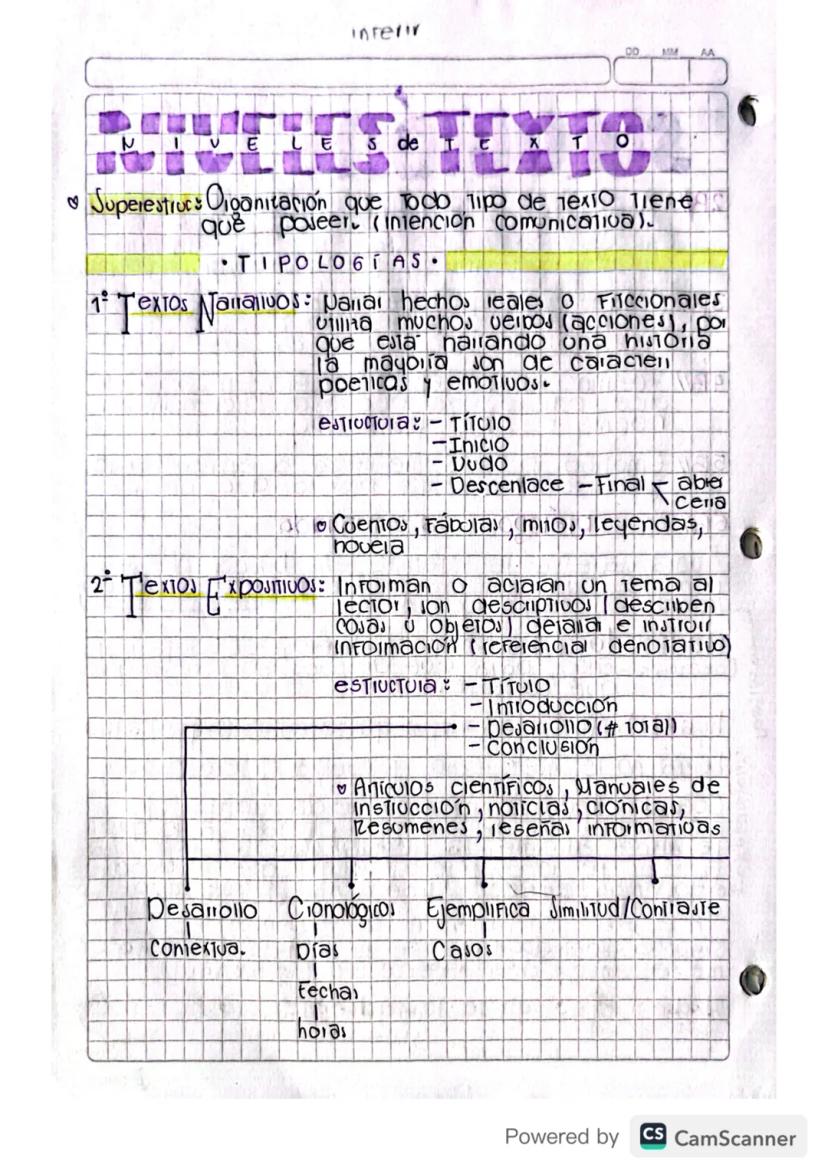 inferir
DD MM AA
NIVELES de TEXTO
Superestruc: Organización que todo tipo de texto tiene
que poseer. (intención comunicativa).
• TIPOLOGÍAS •
1° Textos Narrativos: narrar hechos reales o Ficcionales
utiliza muchos verbos (acciones), por
que está narrando una historia
la mayoría son de caracterr
poeticas y emotivos.
estructura: - Título
- Inicio
- Nudo
- Descenlace - Final < abier
cerra
Cuentos, Fábulas, mitos, leyendas,
novela
2° Textos Expositivos: Informan o aclaran un tema al
lector, son descriptivos (describen
cosas u objetos) detalla e instruir
información (referencial denotativo)
estructura: - Título
- Introducción
- Desarrollo (# total)
- Conclusión
Artículos científicos, Manuales de
instrucción, noticias, crónicas,
Resumenes, reseñas informativas
Desarrollo Cronológicos Ejemplifica Similitud/Contraste
Contextua. Días Casos
Fechas
horas
Powered by CS CamScanner